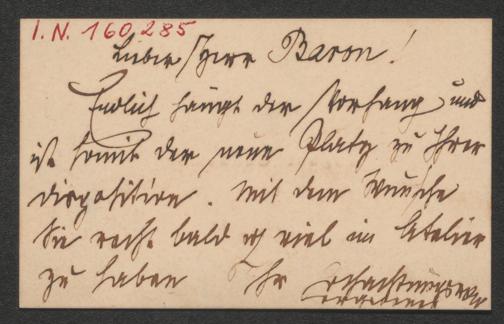 I. N. 160,285
Lieber Herr Baron!
Endlich hängt der Vorhang und
ist somit der neue Platz zu Ihrer
disposition. Mit dem Wunsche
Sie recht bald u viel im Atelier
zu haben Ihr hochachtungsvoll
ergebenst